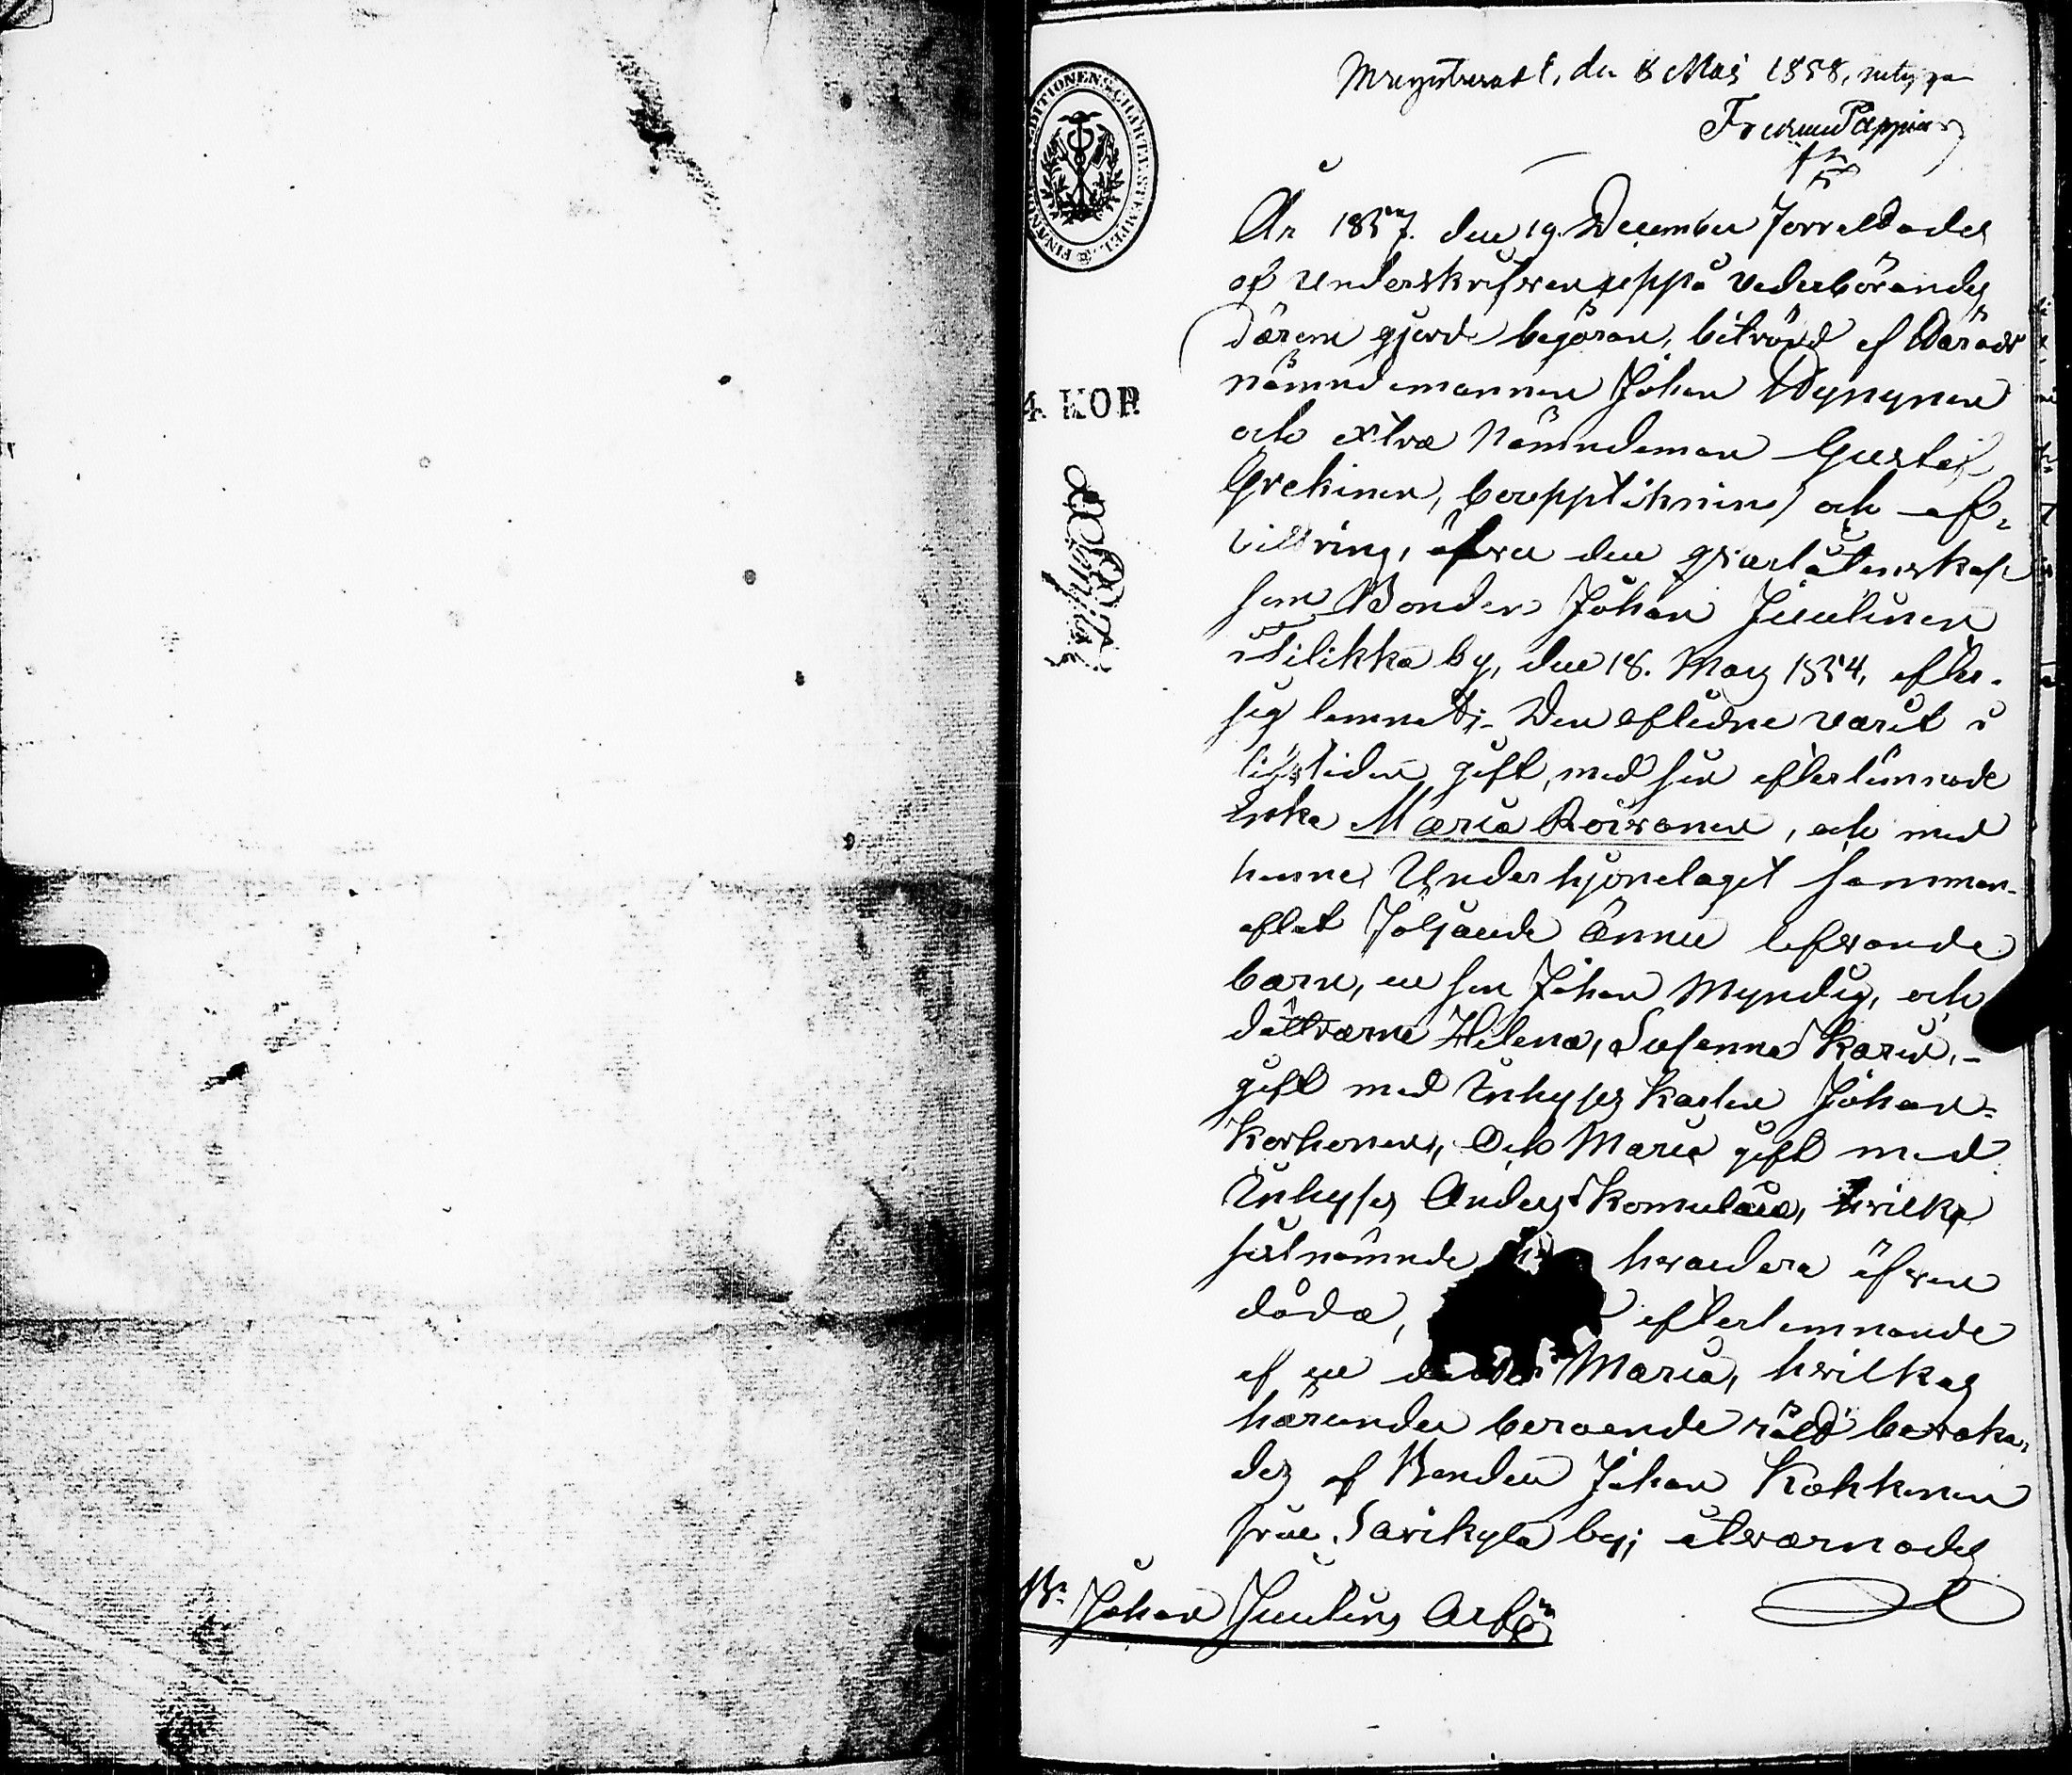 den 8 Maj 1858,
FINANS EXPEDITIONENS CHARTÆ STEMPEL
År 1857. den 19. December förrättades
af Underskrifven uppå vederbörandes
därom gjord begäran, biträdd af Härads
nämndemannen Johan Nyrynen
och extra Nämndeman Gustaf
4. KOP.
Grekinen, bouppteckning och af-
vittring, öfver den qvarlåtenskap
som Bonden Johan Juulinen
i Tilikka by, den 18. Maj 1854, efter
sig lemnat; Den aflidne varit i
lifstiden gift, med sin efterlemnade
Enka Maria Roivanen, och med
henne Under hjonelaget samman-
aflat följande ännu lefvande
barn, en son Johan Myndig, och
döttrarne Helena, Susanna Karin, -
gift med Inhyses karlen Johan
Korhonen, Och Maria gift med
Inhyses Anders Komulain, hvilka
sistnämnde hvardera äfven
döda, efterlemnande
af en dotter Maria, hvilkas
härunder beroende rätt bevaka-
des af Bonden Johan Kokkonen
från Sarikylä by; utvarnades
Johan Juulins Arf